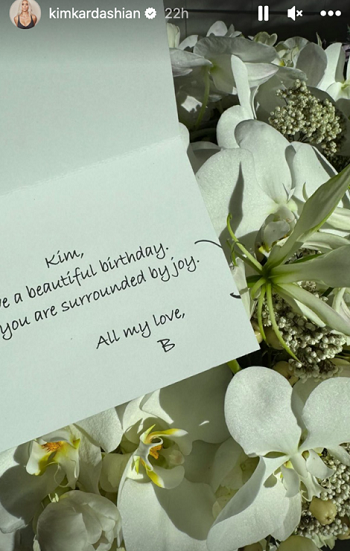 kimkardashian 22h
Kim,
ve a beautiful birthday.
you are surrounded by joy.
All my love,
B